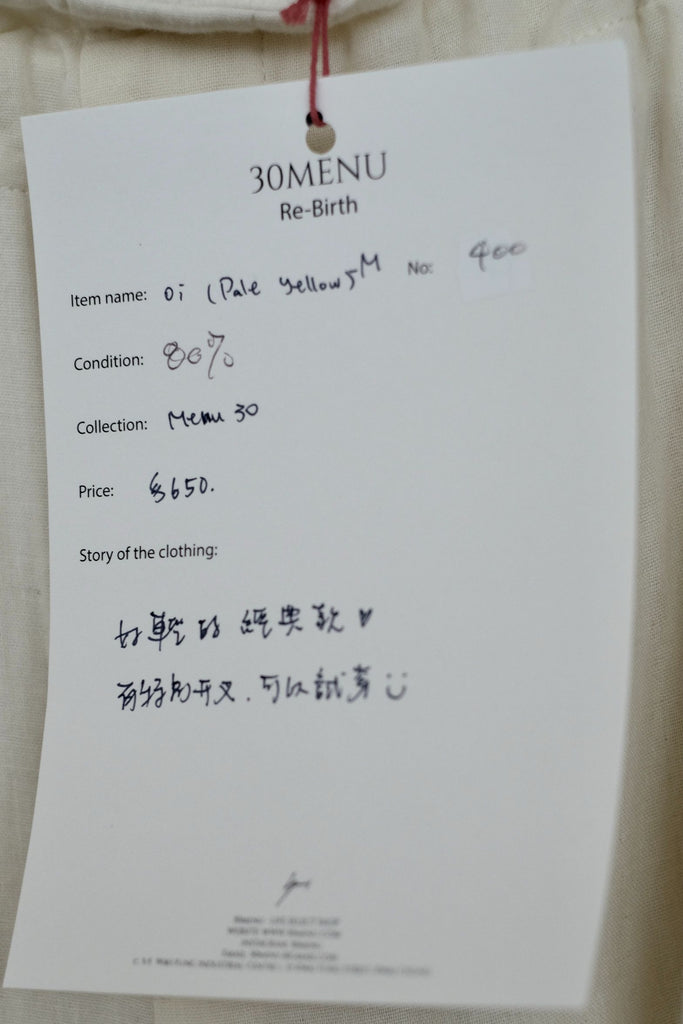 30MENU
Re-Birth
Item name: Oi (Pale Yellow) M No: 400
Condition: 80%
Collection: Menu 30
Price: $650.
Story of the clothing:
好輕的經典款♥
有特別开叉.可以試穿